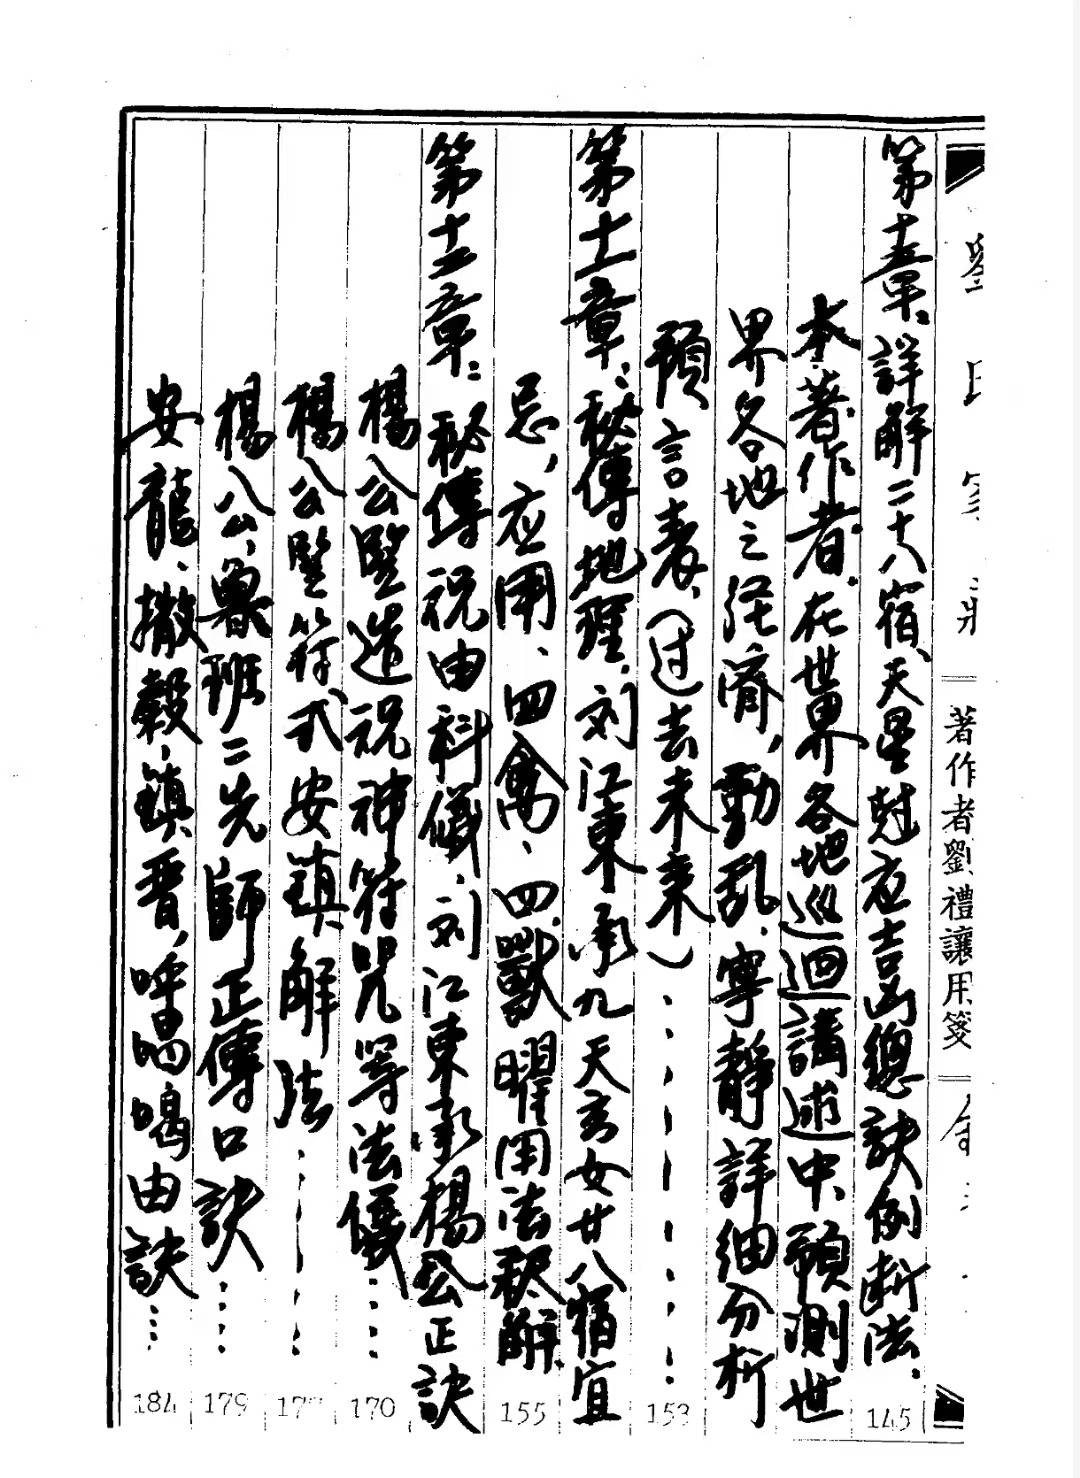 劉氏
著作者劉禮讓用箋
第十章：詳解二十八宿、天星尅应吉凶總訣例断法， 145
本著作者．在世界各地巡迴講述中預測世
界各地之経濟，動乱．寧靜詳細分析
預言表，（过去未来）…… 153
第十一章：秘傳地理．刘江東承九天玄女廿八宿宜
忌，应用、四禽、四獸曜用法釈解 155
第十二章：秘傳祝由科儀．刘江東承楊公正訣
楊公竪造祝神符咒等法儀…… 170
楊公竪符式安鎮解法……
楊公，魯班二先師正傳口訣…… 179
安龍、撒穀，鎮 ，呼 喝由訣…… 184